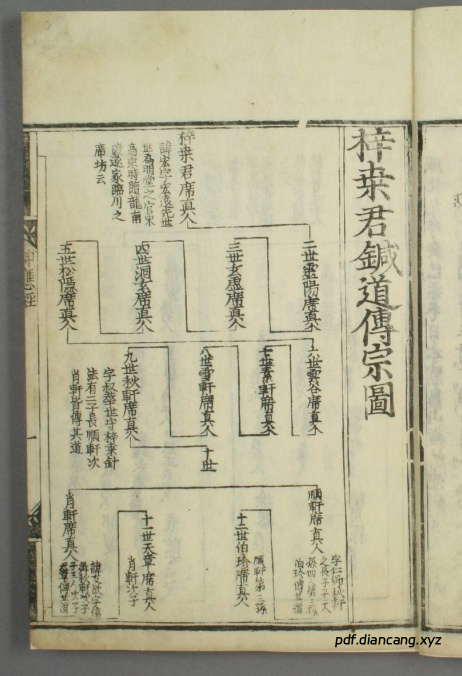 梓桑君鍼道傳宗圖
梓桑君席真人
諱宏字宏遠先世
世為明堂之官宋
高宗時隨龍南
渡遂家臨川之
席坊云
二世靈陽席真人
三世玄虛席真人
四世洞玄席真人
五世松隱席真人
六世雲谷席真人
七世素軒席真人
八世雪軒席真人
九世秋軒席真人
字叔華世守梓桑針
法有二子長順軒次
肖軒皆傳其道
十世
順軒席真人
肖軒席真人
十一世天章席真人
肖軒次子
十二世伯珍席真人
順軒第三孫
神應經
pdf.diancang.xyz